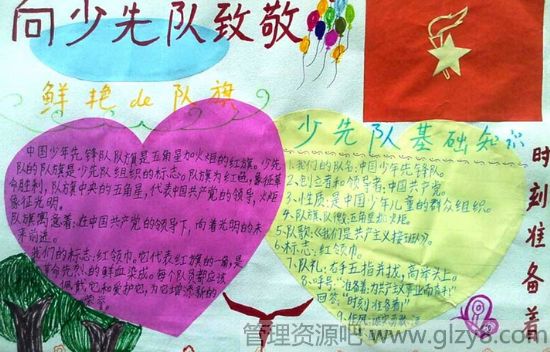 向少先队致敬
鲜艳de队旗
中国少年先锋队队旗是五角星加火炬的红旗。少先
队的队旗是少先队组织的标志。队旗为红色,象征革
命胜利,队旗中央的五角星,代表中国共产党的领导,火炬
象征光明。
队旗寓意着:在中国共产党的领导下,向着光明的未
来前进。
我们的标志:红领巾。它代表红旗的一角,是
革命先烈的鲜血染成。每个队员都应该
佩戴它和爱护它,为它增添新的
荣誉。
少先队基础知识
1.我们的队名:中国少年先锋队。
2.创立者和领导者:中国共产党。
3.性质:是中国少年儿童的群众组织。
4.队旗、队徽:五角星加火炬。
5.队歌:《我们是共产主义接班人》。
6.标志:红领巾。
7.队礼:右手五指并拢,高举头上。
8.呼号:"准备着,为共产主义事业而奋斗!"
回答:"时刻准备着!"
9.作风:诚实、勇敢、活
时刻准备着
管理资源吧 www.glzy8.com